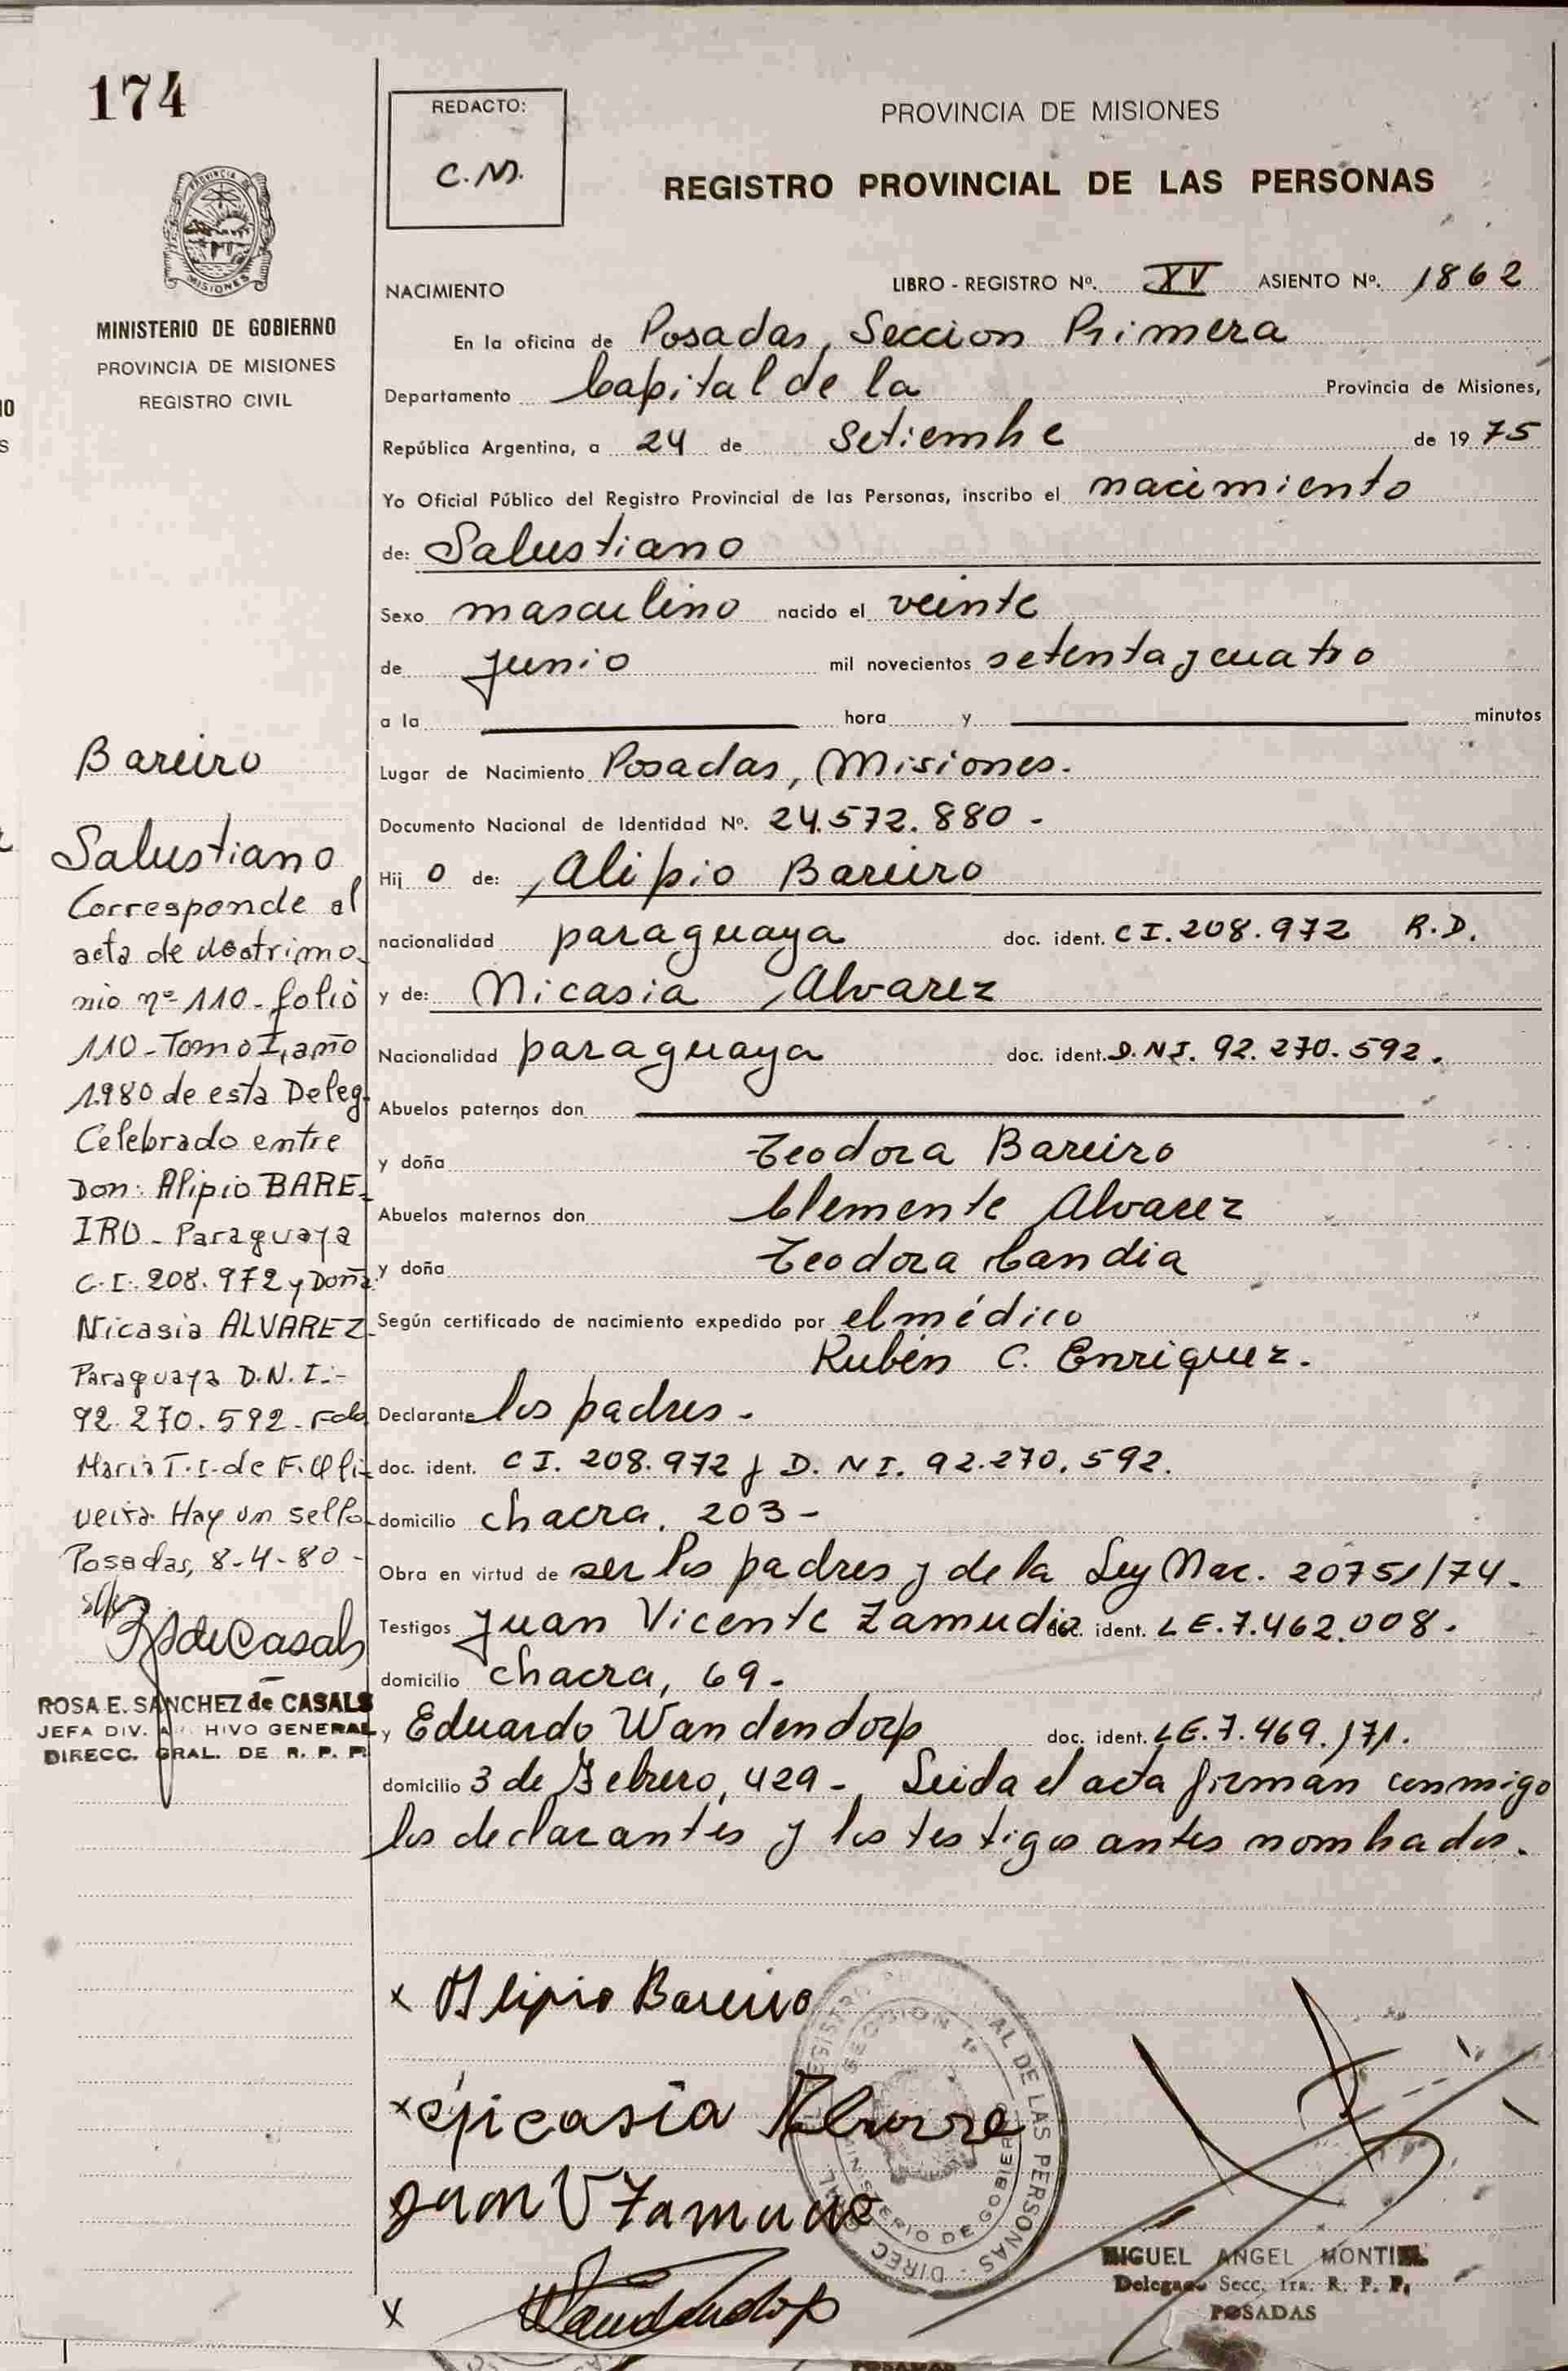 174
PROVINCIA DE
MISIONES
MINISTERIO DE GOBIERNO
PROVINCIA DE MISIONES
REGISTRO CIVIL
Bareiro
Salustiano
Corresponde al
acta de
nio nº 110 - folio
110 - Tomo I, año
1980 de esta Deleg.
Celebrado entre
Don: Alipio BARE-
IRO - Paraguaya
C.I. 208.972 y Doña
Nicasia ALVAREZ-
Paraguaya D.N.I.-
92.270.592 - Fdo
Maria T. I. de F.
veira. Hay un sello
Posadas, 8-4-80 -
de Casals
ROSA E. SANCHEZ de CASALS
JEFA DIV. HIVO GENERAL
DIRECC. GRAL. DE R. P. P.
REDACTO:
C.M.
PROVINCIA DE MISIONES
REGISTRO PROVINCIAL DE LAS PERSONAS
NACIMIENTO LIBRO - REGISTRO Nº. XV ASIENTO Nº. 1862
En la oficina de Posadas, Seccion Primera
Departamento Capital de la Provincia de Misiones,
República Argentina, a 24 de Setiembre de 1975
Yo Oficial Público del Registro Provincial de las Personas, inscribo el nacimiento
de: Salustiano
Sexo masculino nacido el veinte
de junio mil novecientos setenta y cuatro
a la hora y minutos
Lugar de Nacimiento Posadas, Misiones.
Documento Nacional de Identidad Nº. 24.572.880 -
Hijo de: Alipio Bareiro
nacionalidad paraguaya doc. ident. CI. 208.972 R.D.
y de: Nicasia Alvarez
Nacionalidad paraguaya doc. ident. D.N.I. 92.270.592.
Abuelos paternos don
y doña Teodora Bareiro
Abuelos maternos don Clemente Alvarez
y doña Teodora Candia
Según certificado de nacimiento expedido por el médico
Rubén C. Enriquez.
Declarante los padres -
doc. ident. CI. 208.972 y D.NI. 92.270.592.
domicilio chacra, 203 -
Obra en virtud de ser los padres y de la Ley Nac. 20751/74 -
Testigos Juan Vicente Zamudio doc. ident. LE. 7.462.008.
domicilio chacra, 69 -
y Eduardo Wandendorp doc. ident. LE. 7.469.171.
domicilio 3 de Febrero, 429 - Leida el acta firman conmigo
los declarantes y los testigos antes nombrados.
x Alipio Bareiro
x
Juan V Zamudio
x
REGISTRO AL DE LAS PERSONAS - DIREC
SECCION 1ª
MINISTERIO DE GOBIERNO
MIGUEL ANGEL MONTIEL
Delegado Secc. 1ra. R. P. P.
POSADAS